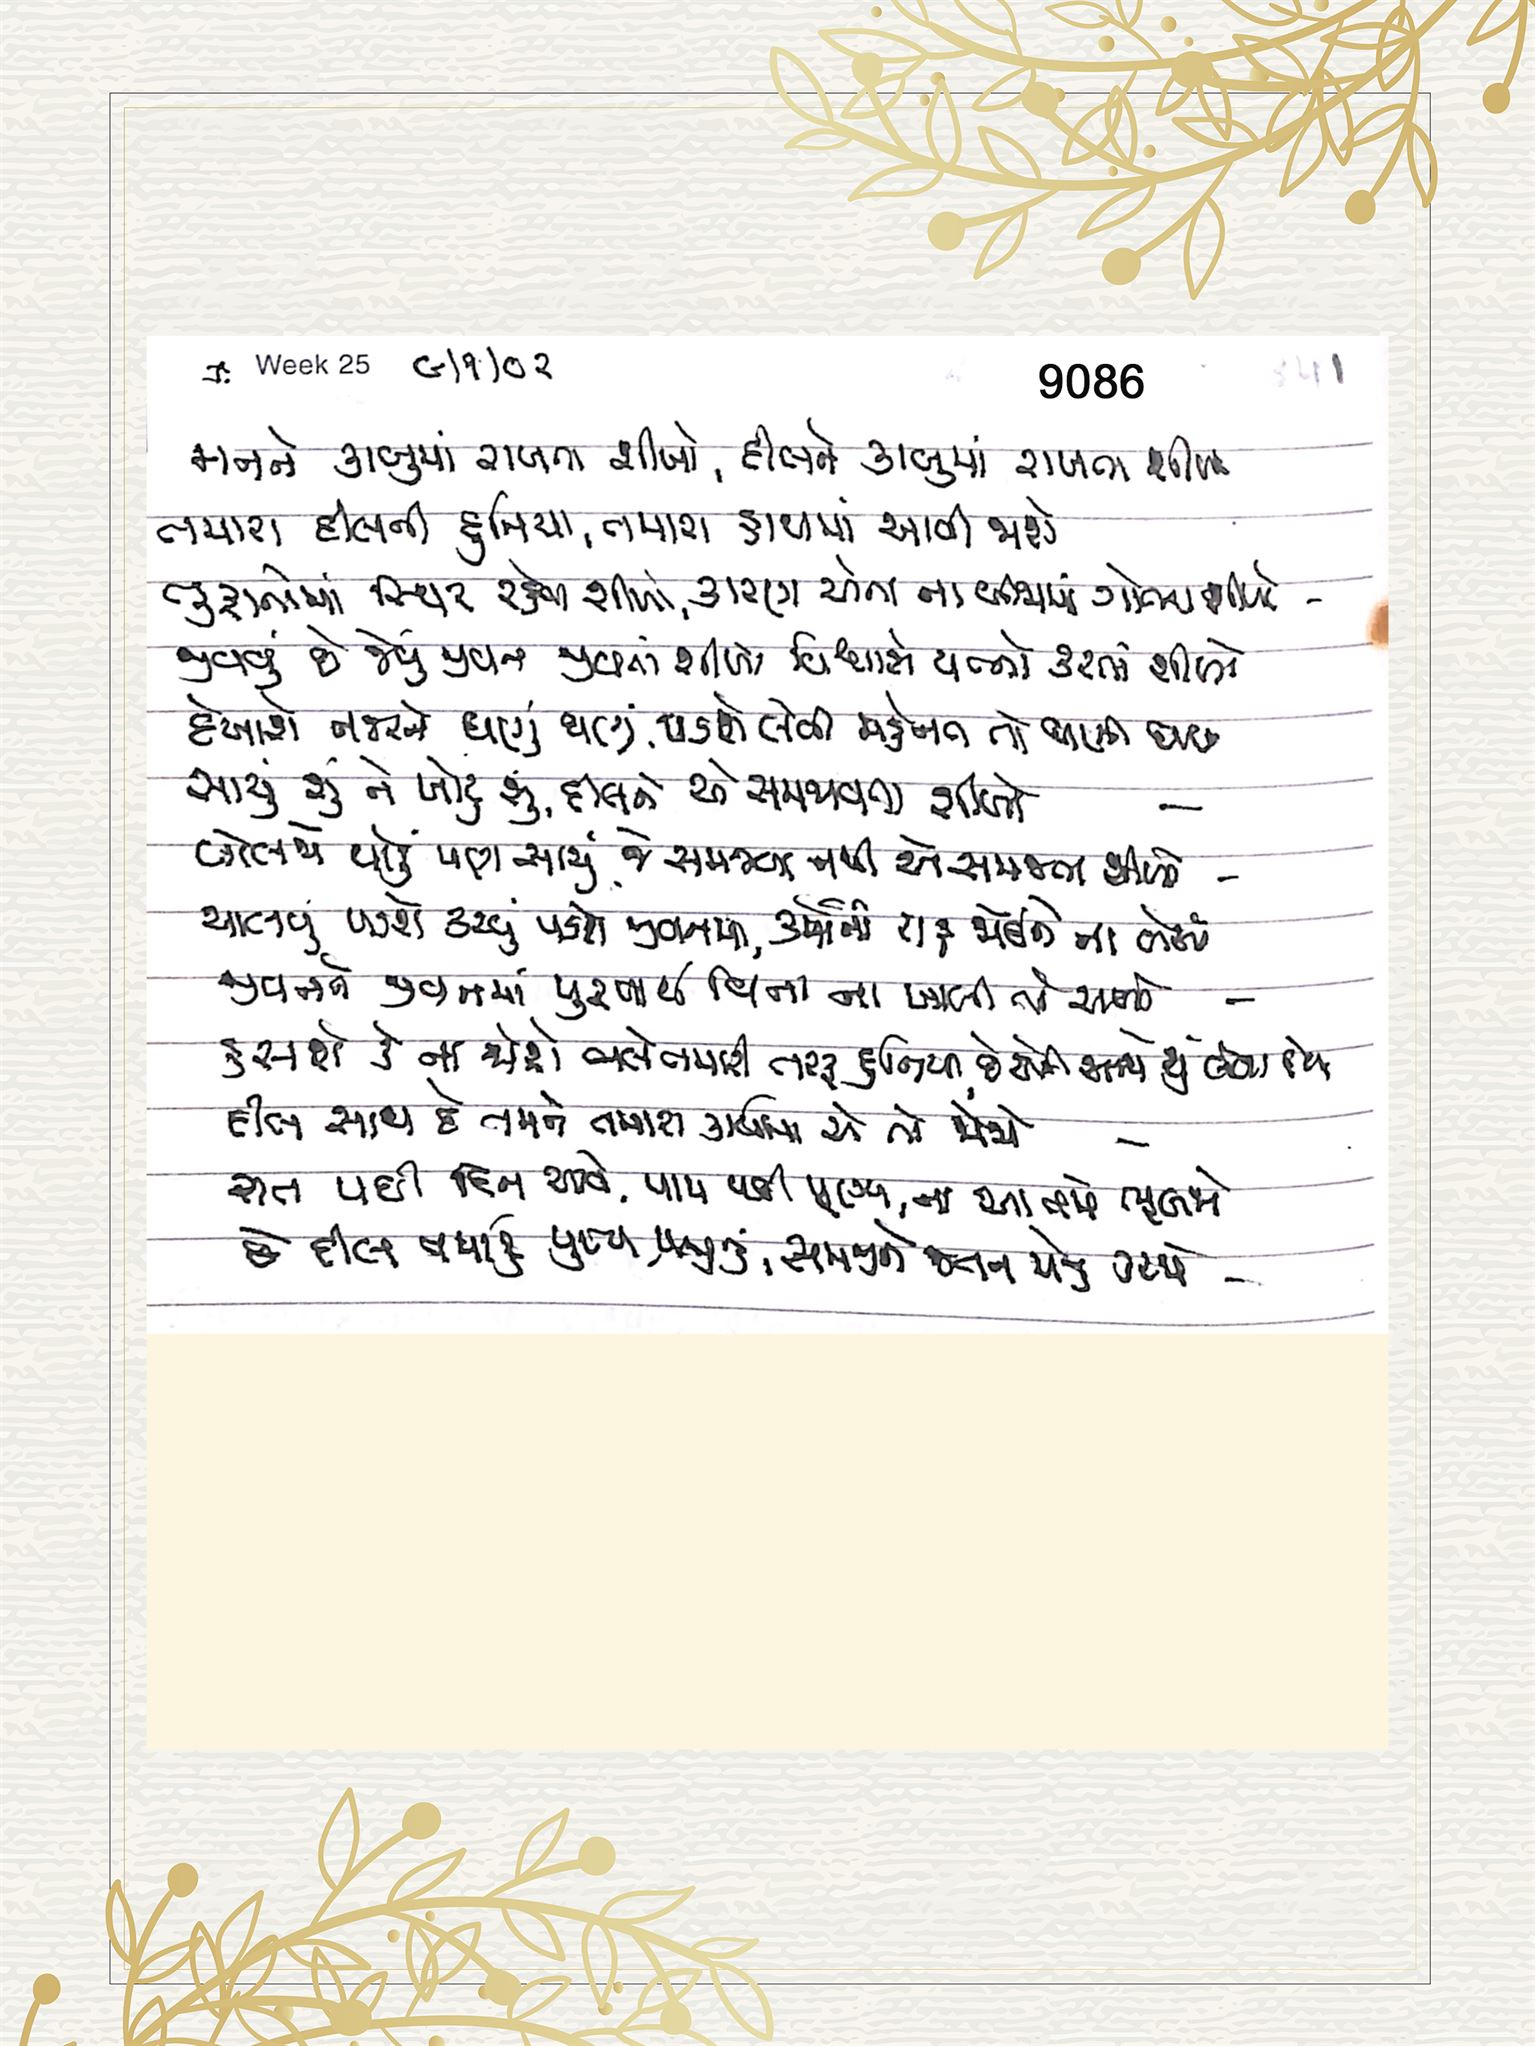 Week 25 ૯)૧)૦૨
9086
મનને કાબુમાં રાખતા શીખો, દીલને કાબુમાં રાખતા શીખો
તમારા દીલની દુનિયા, તમારા હાથમાં આવી જાશે
તુફાનોમાં સ્થિર રહેવા શીખો, કારણ એના ના બીજામાં ગોતતા શીખો -
જીવવું છે જેવું જીવન જીવતાં શીખો વિશ્વાસે યત્નો કરતાં શીખો
દેખાશે નજરને ઘણું ઘણું, પડશે લેવી મહેનત તો
સાચું શું ને ખોટું શું, દીલને એ સમજાવતા શીખો -
બોલજે થોડું પણ સાચું, જે સમજતા નથી એ સમજતા શીખો -
ચાલવું પડશે હરવું પડશે જીવનમાં, રાહ જોઈને ના બેસો
જીવનને જીવનમાં પુરષાર્થ વિના ના ખાલી તો રાખો -
હસશે કે ના જોશે ભલે તમારી તરફ દુનિયા, છે એની સાથે શું લેવા દેવા
દીલ સાથ દે તમને તમારા કાર્યોમાં એ તો જોજો -
રાત પછી દિન આવે, પાપ પછી પૂણ્ય, ના આ તમે ભૂલજો
છે દીલ તમારું પુષ્પ પ્રભુનું, સમજીને જતન એનું કરજો -